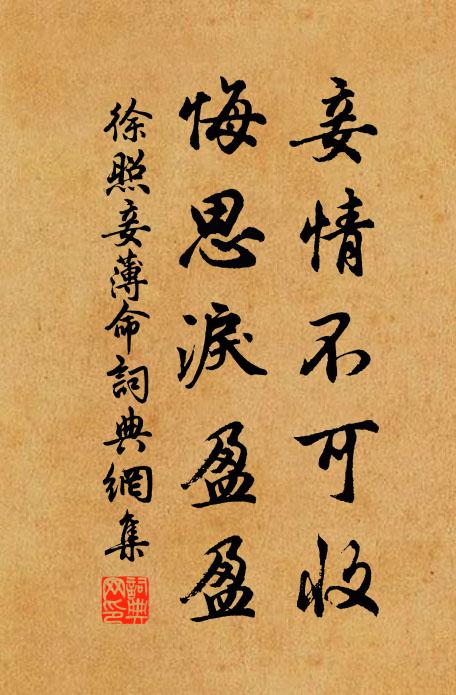 妾情不可收
悔思淚盈盈
徐照妾薄命詞典網集
詞典網印